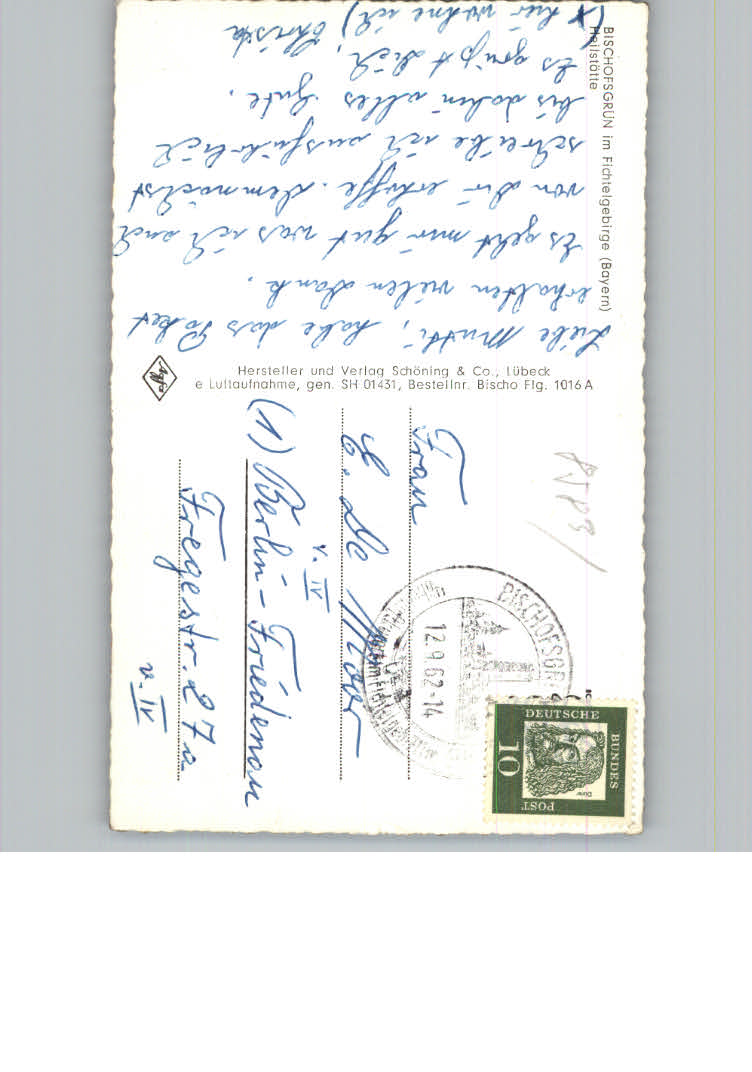 BISCHOFSGRÜN im Fichtelgebirge (Bayern)
Heilstätte
Liebe Mutti, habe das Paket
erhalten vielen Dank.
Es geht mir gut was ich auch
von dir erhoffe. Demnächst
schreibe ich ausführlich
bis dahin alles Gute.
Es grüßt dich, Christa
(x hier wohne ich)
Hersteller und Verlag Schöning & Co., Lübeck
e Luftaufnahme, gen. SH 01431, Bestellnr. Bischo Flg. 1016 A
Agfa
Frau
E. De
v. IV
(1) Berlin-Friedenau
Fregestr. 27a
v. IV
BISCHOFSGR
12.9.62-14
DEUTSCHE
BUNDES
POST
10
Dürer